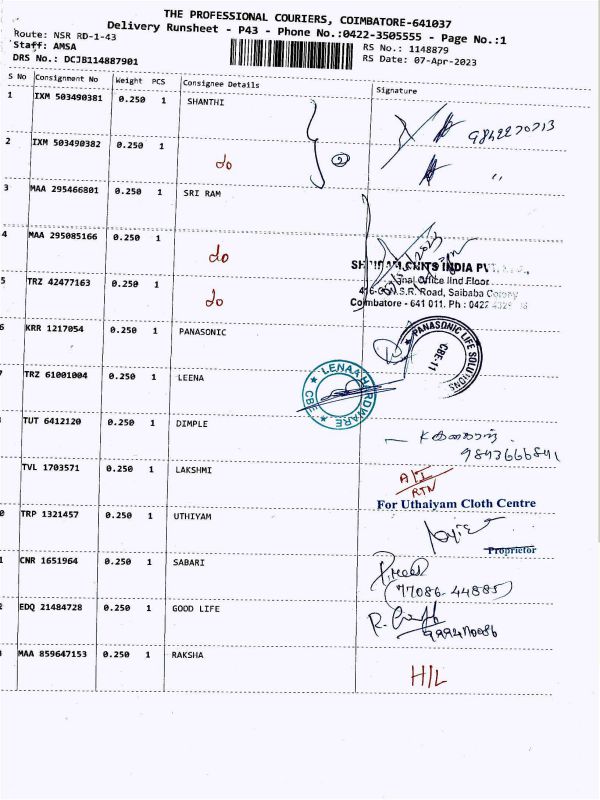 THE PROFESSIONAL COURIERS, COIMBATORE-641037
Delivery Runsheet - P43 - Phone No.:0422-3505555 - Page No.:1
Route: NSR RD-1-43
RS No.: 1148879
Staff: AMSA
RS Date: 07-Apr-2023
DRS No.: DCJB114887901
S No Consignment No Weight PCS Consignee Details Signature
1 IXM 503490381 0.250 1 SHANTHI 9842270713
2 IXM 503490382 0.250 1 do ② "
3 MAA 295466801 0.250 1 SRI RAM
4 MAA 295085166 0.250 1 do
SHRIRAM CHITS INDIA PVT.
Office IInd Floor
5 TRZ 42477163 0.250 1 do
N.S.R. Road, Saibaba Colony
Coimbatore - 641 011. Ph : 0422
6 KRR 1217054 0.250 1 PANASONIC
PANASONIC LIFE SOLUTIONS
CBE-11
TRZ 61001004 0.250 1 LEENA
LENAA HARDWARE
CBE
TUT 6412120 0.250 1 DIMPLE
9843666841
TVL 1703571 0.250 1 LAKSHMI
RTN
For Uthaiyam Cloth Centre
0 TRP 1321457 0.250 1 UTHIYAM
Proprietor
1 CNR 1651964 0.250 1 SABARI
77086-44885
2 EDQ 21484728 0.250 1 GOOD LIFE
MAA 859647153 0.250 1 RAKSHA H/L